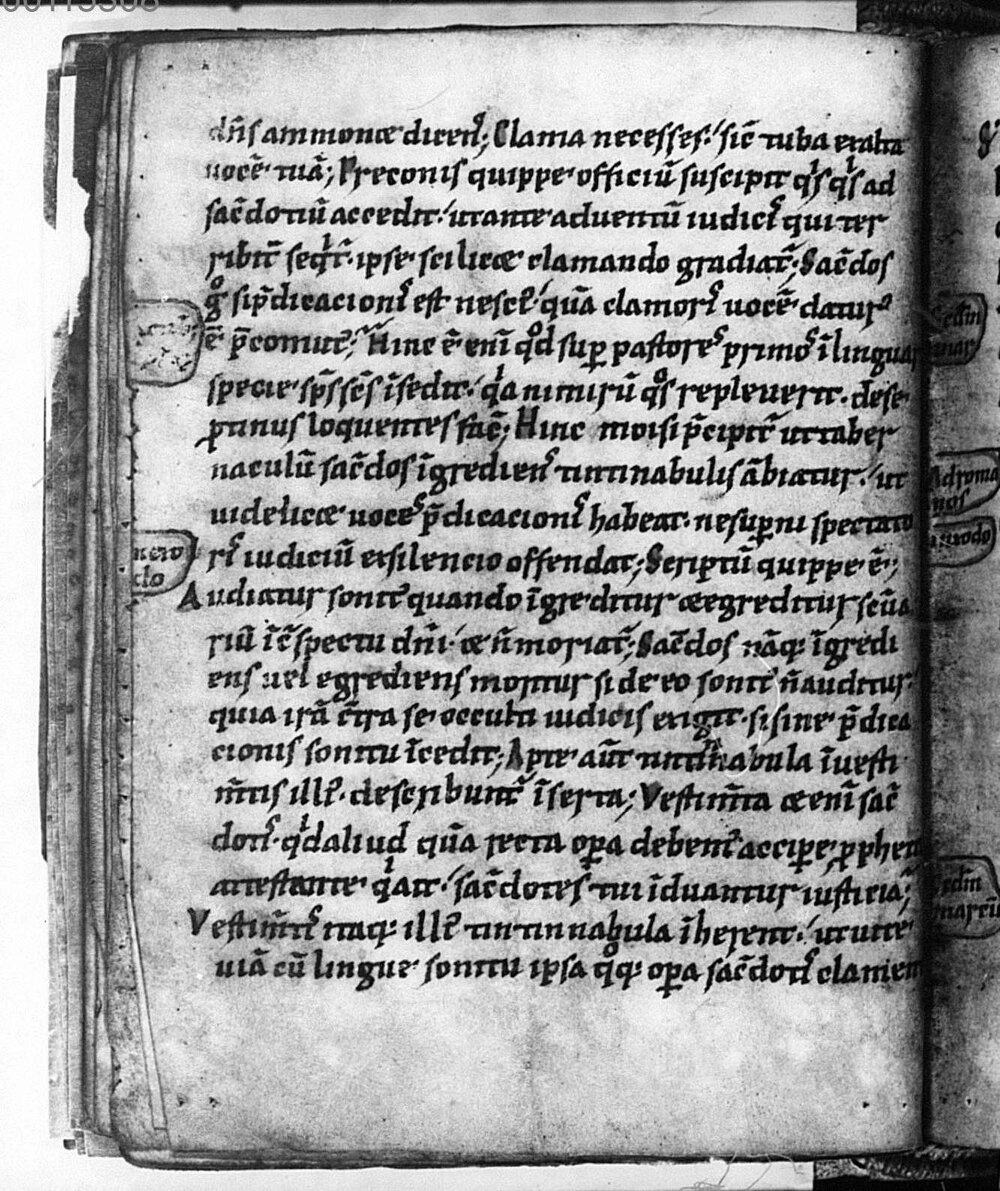 dn̄s ammonæ dicen᷒; Clama necesses. sic̄ tuba exalta
uocē tuā; Preconis quippe officiū suscipit qͥsqͥs ad
sac̄dotiū accedit. ut ante aduentū iudicꝭ qui ter
ribilit̄ seqͥt̄. ipse scilicæ clamando gradiat̄; Sac̄dos
gͦ si p̄dicacionꝭ est nescꝰ. quā clamorꝭ uocē datur᷒
ē p̄co mutꝰ; Hinc ē enī qd̄ sup̱ pastoreˢ primoˢ ī linguar᷒
specie sp̄s sc̄s īsedit. qͥa nimirū qͦs repleuerit. de se
ptinus loquentes fac̄; Hinc moisi p̄cipit̄ ut taber
naculū sac̄dos īgredienˢ tintinnabulis ābiatur. ut
uidelicæ uoceˢ p̄dicacionꝭ habeat. ne sup̱ni spectato
rꝭ iudiciū ex silencio offendat; Scriptū quippe ē;
Audiatur sonitꝰ quando īgreditur æ egreditur sc̄ua
riū ī c̄spectu dn̄i. æ n̄ moriat̄; Sac̄dos nāq; īgredi
ens uel egrediens moritur si de eo sonitꝰ n̄ auditur.
quia irā c̄tra se occulti iudicis exigit. si sine p̄dica
cionis sonitu īcedit; Apte aūt tintinnabula ī uesti
m̄tis illiꝰ describunt̄ īserta; Vestim̄ta æenī sac̄
dotꝭ. qͥd aliud quā recta op̱a debemꝰ accip̱e. ꝓphæ
attestante qͥ ait. sac̄dotes tui īduantur iusticia;
Vestim̄tꝭ itaq; illiꝰ tintinnabula īherent. ut uite
uiā cū lingue sonitu ipsa qͦq; op̱a sac̄dotꝭ clamen
Ad roma
nos